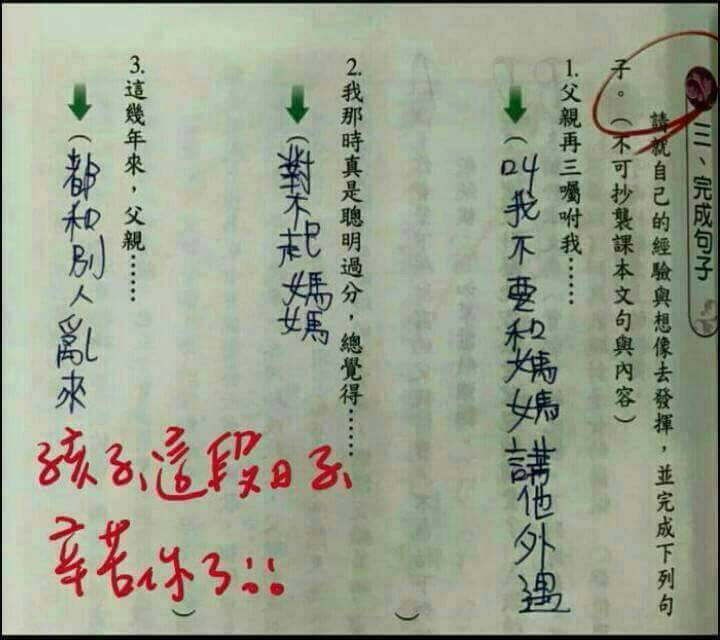 三、完成句子
請就自己的經驗與想像去發揮，並完成下列句
子。（不可抄襲課本文句與內容）
1.父親再三囑咐我……
（叫我不要和媽媽講他外遇）
2.我那時真是聰明過分，總覺得……
（對不起媽媽）
3.這幾年來，父親……
（都和別人亂來）
孩子這段日子
辛苦你了!!